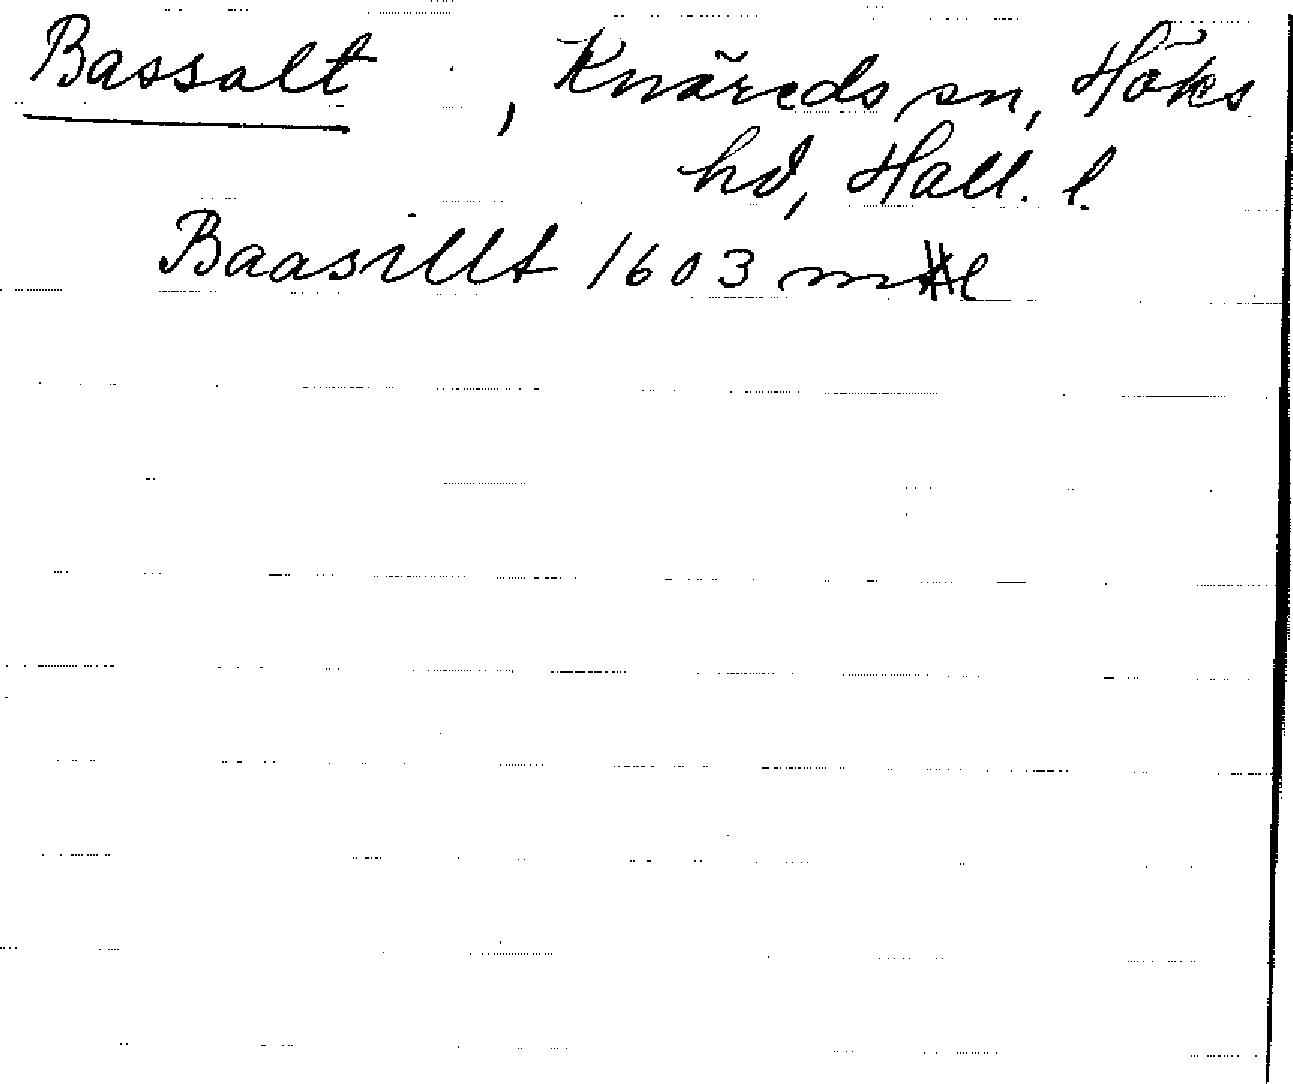 Bassalt, Knäreds sn, Höks
hd, Hall. l.
Baasillt 1603